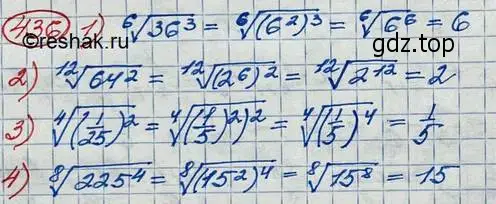 436 1) ⁶√36³ = ⁶√(6²)³ = ⁶√6⁶ = 6
©reshak.ru
gdz.top
2) ¹²√64² = ¹²√(2⁶)² = ¹²√2¹² = 2
3) ⁴√(1/25)² = ⁴√((1/5)²)² = ⁴√(1/5)⁴ = 1/5
4) ⁸√225⁴ = ⁸√(15²)⁴ = ⁸√15⁸ = 15